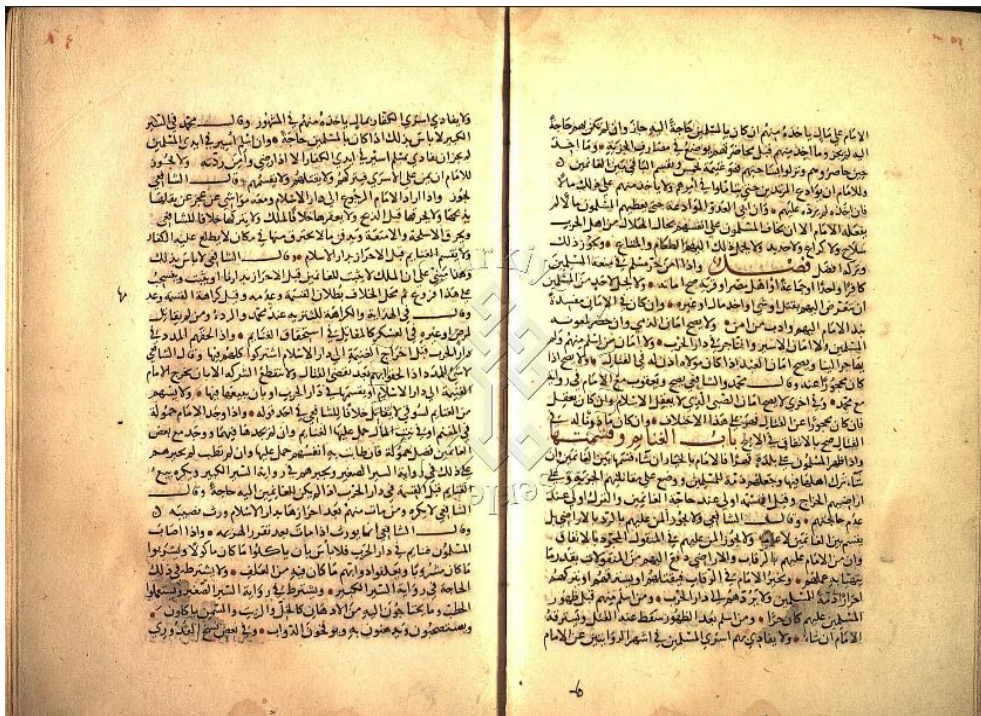 الامام على مال ياخذه منهم ان كان بالمسلمين حاجة اليه جاز وان لم تكن بهم حاجة
اليه لم يجز وما اخذ منهم قبل محاصرتهم يوضع في مصارف الجزية وما اخذ
حين حاصروهم ونزلوا بساحتهم فهو غنيمة يخمس ويقسم الباقي بين الغانمين
وللامام ان يوادع المرتدين حتى ينظروا في امرهم ولا ياخذ منهم على ذلك مالا
فان اخذه لم يرده عليهم وان ابى العدو الموادعة حتى يعطيهم المسلمون مالا لم
يفعله الامام الا ان يخاف المسلمون على انفسهم الهلاك من اهل الحرب
سلاح ولا كراع ولا حديد ولا الطعام والمتاع ويكون ذلك
وتركه افضل فصل واذا امن حر مسلم في منعة المسلمين
كافرا واحدا او جماعة او اهل مصر او قرية صح امانه ولا يحل لاحد من المسلمين
ان يتعرض اليهم بقتل او سبي واخذ مال او غيره وان كان في الامان مفسدة
نبذ الامام اليهم وادب من امن ولا يصح امان الذمي وان حضر لمعونة
المسلمين ولا امان الاسير والتاجر في دار الحرب ولا امان من اسلم منهم ولم
يهاجر الينا ويصح امان العبد اذا كان مولاه اذن له في القتال ولا يصح اذا
كان محجورا عنده وقال محمد والشافعي يصح وابو يعقوب مع الامام في رواية
مع محمد وفي اخرى لا يصح امان الصبي الذي لا يعقل الاسلام وان كان يعقل
فان كان محجورا عن القتال فهو على هذا الاختلاف وان كان ماذونا له في
القتال صح بالاتفاق في الاصح باب الغنائم وقسمتها
واذا ظهر المسلمون على بلدة قهرا فالامام بالخيار ان شاء قسمها بين الغانمين وان
شاء ترك اهلها فيها وجعلهم ذمة للمسلمين ووضع على مقاتلهم الجزية وعلى
اراضيهم الخراج وقيل القسمة اولى عند حاجة الغانمين والترك اولى عند
عدم حاجتهم وقال الشافعي ولا يجوز المن عليهم بالرد بالاراضي بل
يقسم بين الغانمين ولا يجوز المن عليهم في المنقول المجرد بالاتفاق
وان من الامام عليهم بالرقاب والاراضي دفع اليهم من المنقولات بقدر ما
يتهيا به عملهم ويخير الامام في الرقاب فيقتلهم او يسترقهم او يتركهم
احرارا ذمة للمسلمين ولا يردهم الى دار الحرب ومن اسلم منهم قبل ظهور
المسلمين عليهم كان حرا ومن اسلم بعد الظهور سقط عنه القتل ويسترقه
الامام ان شاء ولا يفادي بهم اسرى المسلمين في اشهر الروايتين عن الامام
ولا يفادي اسرى الكفار بمال ياخذه منهم في المشهور وقال محمد في السير
الكبير لا باس بذلك اذا كان بالمسلمين حاجة وان اسلم اسير في ايدي المسلمين
لم يجز ان يفادي بمسلم اسير في ايدي الكفار الا اذا رضي وامن ردته ولا يجوز
للامام ان يمن على الاسرى فيتركهم ولا يقتلهم ولا يقسمهم وقال الشافعي
يجوز واذا اراد الامام الرجوع الى دار الاسلام ومعه مواشي عجز عن نقلها
يذبحها ولا يحرقها قبل الذبح ولا يعقرها خلافا لمالك ولا يتركها خلافا للشافعي
ويحرق الاسلحة والامتعة ويدفن ما لا يحترق منها في مكان لا يطلع عليه الكفار
ولا يقسم الغنائم قبل الاحراز بدار الاسلام وقال الشافعي لا باس بذلك
وهذا مبني على ان الملك لا يثبت للغانمين قبل الاحراز بدارنا او يثبت ويبتني
على هذا فروع ثم محل الخلاف بطلان القسمة وعدمه وقيل كراهة القسمة وعدمها
وقال في الهداية والكراهة للتنزيه عند محمد والردء ومن لم يقاتل
لمرض او غيره في العسكر كالمقاتل في استحقاق الغنائم واذا لحقهم المدد في
دار الحرب قبل اخراج الغنيمة الى دار الاسلام اشتركوا كلهم فيها وقال الشافعي
لا شيء للمدد اذا لحقوا بهم بعد تقضي القتال ولا تنقطع الشركة الا بان يخرج الامام
الغنيمة الى دار الاسلام او يقسمها في دار الحرب او بان يبيعها فيها ولا يسهم
من الغنائم لسوقي لا يقاتل خلافا للشافعي في احد قوله واذا وجد الامام حمولة
في المغنم او في بيت المال حمل عليها الغنائم وان لم يجدها فيهما ووجد مع بعض
الغانمين فضل حمولة فان طابت به انفسهم حمل عليها وان لم تطب لم يجبرهم
على ذلك في رواية السير الصغير ويجبرهم في رواية السير الكبير ويكره بيع
الغنائم قبل القسمة في دار الحرب اذا لم يكن للغانمين اليه حاجة وقال
الشافعي لا يكره ومن مات منهم بعد احرازها بدار الاسلام ورث نصيبه
وقال الشافعي انما يورث اذا مات بعد تقرر الهزيمة واذا اصاب
المسلمون غنايم في دار الحرب فلا باس بان ياكلوا ما كان ماكولا ويشربوا
ما كان مشروبا ويعلفوا دوابهم ما كان فيه من العلف ولا يشترط في ذلك
الحاجة في رواية السير الكبير ويشترط في رواية السير الصغير ويستعملوا
الحطب وما يحتاجون اليه من الادهان كالخل والزيت والسمن ياكلون
ويستصبحون ويدهنون به ويوقحون الدواب وفي بعض نسخ القدوري